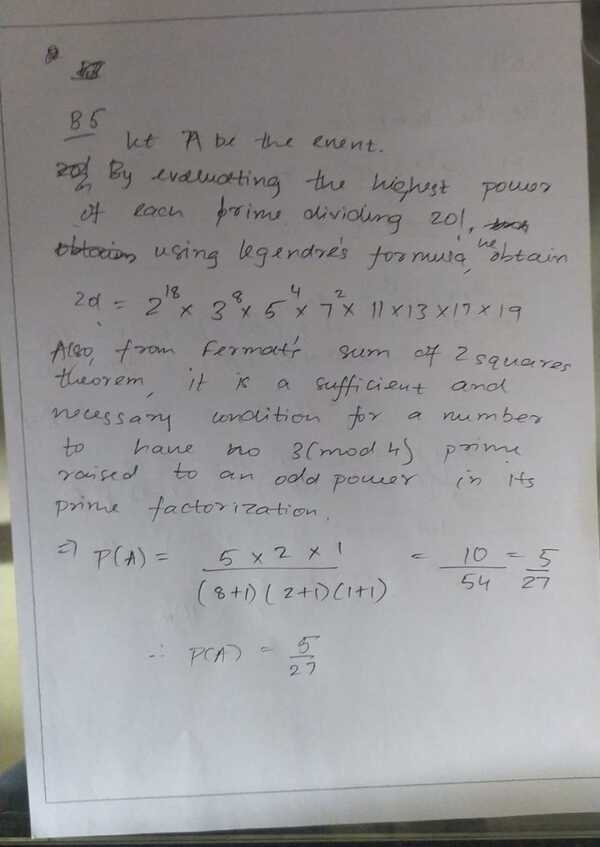 B5
let A be the event.
By evaluating the highest power
of each prime dividing 20!,
using legendre's formula, we obtain
20! = 2^18 × 3^8 × 5^4 × 7^2 × 11 × 13 × 17 × 19
Also, from Fermat's sum of 2 squares
theorem, it is a sufficient and
necessary condition for a number
to have no 3(mod 4) prime
raised to an odd power in its
prime factorization.
⇒ P(A) = 5 × 2 × 1 / (8+1)(2+1)(1+1) = 10/54 = 5/27
∴ P(A) = 5/27